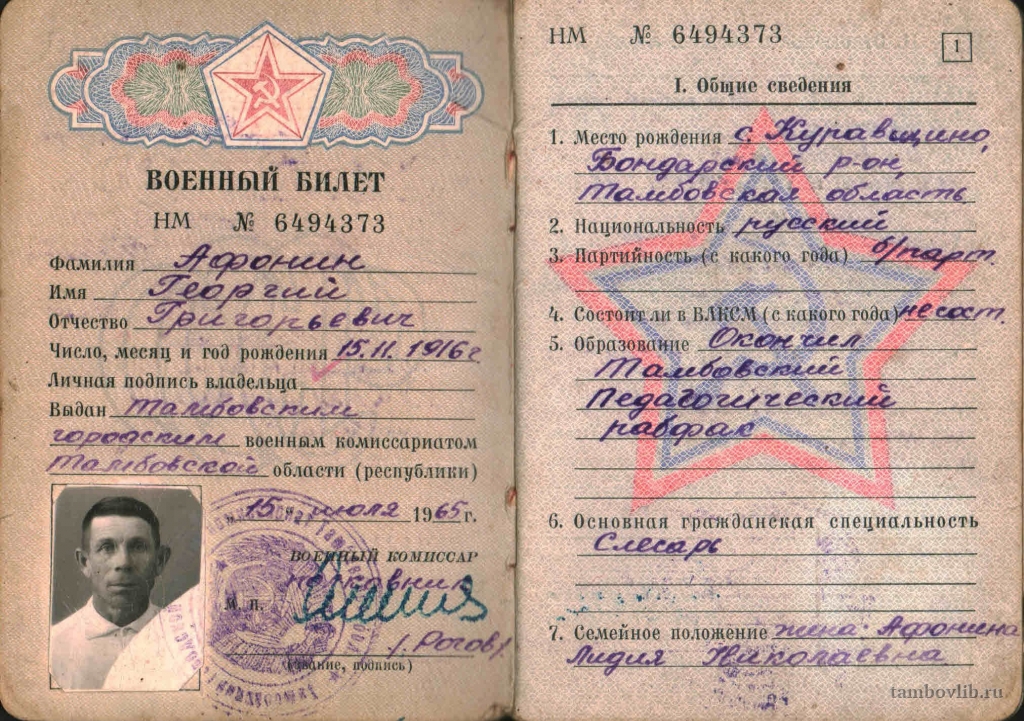 ВОЕННЫЙ БИЛЕТ
НМ № 6494373
Фамилия Афонин
Имя Георгий
Отчество Григорьевич
Число, месяц и год рождения 15.11.1916г
Личная подпись владельца
Выдан Тамбовским
городским военным комиссариатом
Тамбовской области (республики)
15 июля 1965 г.
ВОЕННЫЙ КОМИССАР
полковник
М. П.
(Рогов)
(звание, подпись)
НМ № 6494373
1
I. Общие сведения
1. Место рождения с. Куравщино,
Бондарский р-он,
Тамбовская область
2. Национальность русский
3. Партийность (с какого года) б/парт.
4. Состоит ли в ВЛКСМ (с какого года) не сост.
5. Образование Окончил
Тамбовский
Педагогический
рабфак
6. Основная гражданская специальность
Слесарь
7. Семейное положение жена Афонина
Лидия Николаевна
tambovlib.ru